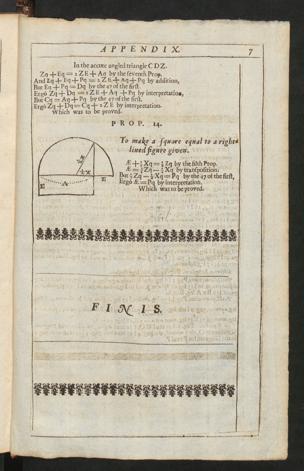 APPENDIX. 7
In the accute angled triangle C D Z.
Zq + Eq = 2 Z E + Aq by the seventh Prop.
And Eq + Eq + Pq = 2 Z E + Aq + Pq by addition,
But Eq + Pq = Dq by the 47 of the first.
Ergo Zq + Dq = 2 Z E + Aq + Pq by interpretation,
But Cq = Aq + Pq by the 47 of the first.
Ergo Zq + Dq = Cq + 2 Z E by interpretation.
Which was to be proved.
PROP. 14.
To make a square equal to a right-
lined figure given.
Æ + ¼ Xq = ¼ Zq by the fifth Prop.
Æ = ¼ Zq - ¼ Xq by transposition:
But ¼ Zq - ¼ Xq = Pq by the 47 of the first,
Ergo Æ = Pq by interpretation.
Which was to be proved.
½X
A
E
E
FINIS.